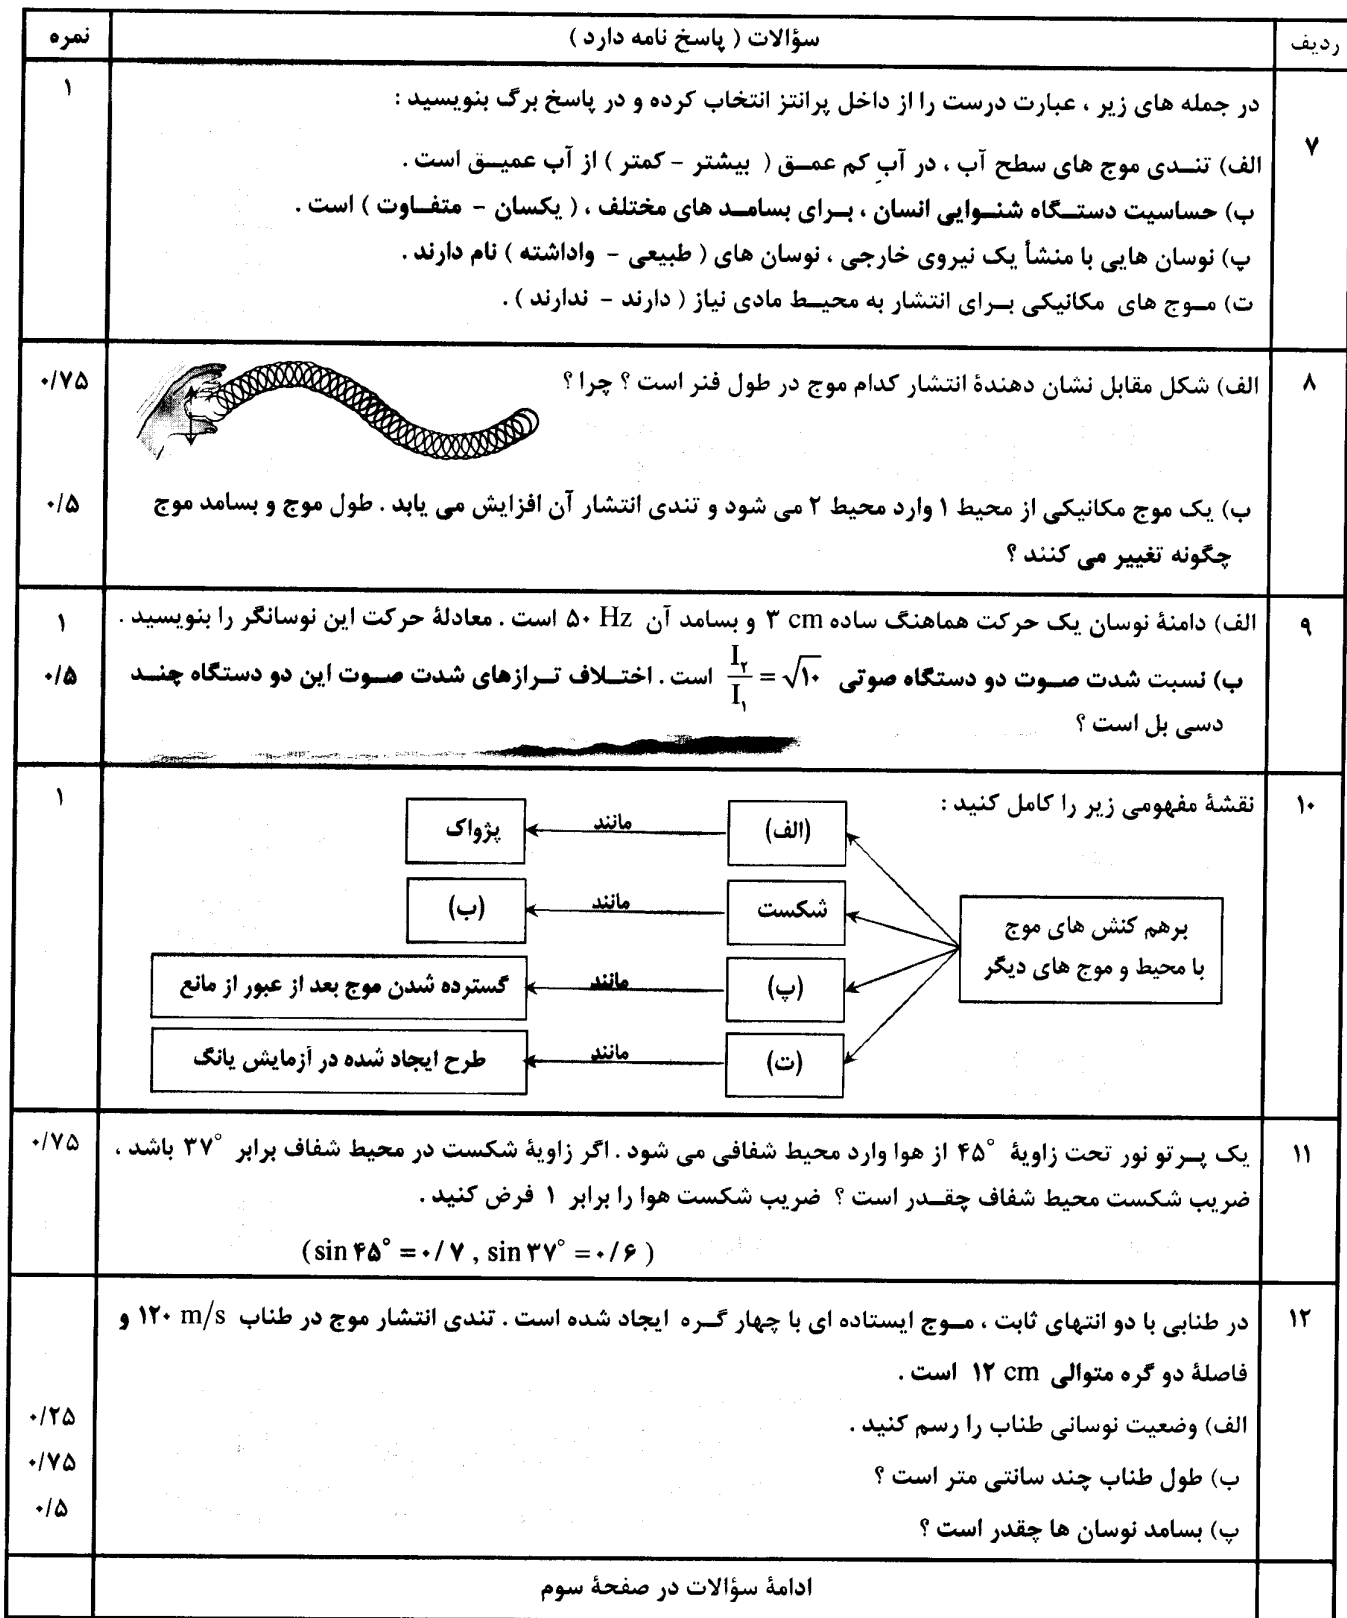 ردیف
سؤالات ( پاسخ نامه دارد )
نمره
۷
در جمله های زیر ، عبارت درست را از داخل پرانتز انتخاب کرده و در پاسخ برگ بنویسید :
۱
الف) تنــدی موج های سطح آب ، در آبِ کم عمــق ( بیشتر - کمتر ) از آب عمیــق است .
ب) حساسیت دستــگاه شنــوایی انسان ، بــرای بسامــد های مختلف ، ( یکسان - متفــاوت ) است .
پ) نوسان هایی با منشأ یک نیروی خارجی ، نوسان های ( طبیعی - واداشته ) نام دارند .
ت) مــوج های مکانیکی بــرای انتشار به محیــط مادی نیاز ( دارند - ندارند ) .
۸
الف) شکل مقابل نشان دهندۀ انتشار کدام موج در طول فنر است ؟ چرا ؟
۰/۷۵
ب) یک موج مکانیکی از محیط ۱ وارد محیط ۲ می شود و تندی انتشار آن افزایش می یابد . طول موج و بسامد موج
۰/۵
چگونه تغییر می کنند ؟
۹
الف) دامنۀ نوسان یک حرکت هماهنگ ساده ۳ cm و بسامد آن ۵۰ Hz است . معادلۀ حرکت این نوسانگر را بنویسید .
۱
ب) نسبت شدت صــوت دو دستگاه صوتی I₂/I₁ = √۱۰ است . اختــلاف تــرازهای شدت صــوت این دو دستگاه چنــد
۰/۵
دسی بل است ؟
۱۰
نقشۀ مفهومی زیر را کامل کنید :
۱
برهم کنش های موج
با محیط و موج های دیگر
(الف)
مانند
پژواک
شکست
مانند
(ب)
(پ)
مانند
گسترده شدن موج بعد از عبور از مانع
(ت)
مانند
طرح ایجاد شده در آزمایش یانگ
۱۱
یک پــرتو نور تحت زاویۀ ۴۵° از هوا وارد محیط شفافی می شود . اگر زاویۀ شکست در محیط شفاف برابر ۳۷° باشد ،
۰/۷۵
ضریب شکست محیط شفاف چقــدر است ؟ ضریب شکست هوا را برابر ۱ فرض کنید .
(sin ۴۵° = ۰/۷ , sin ۳۷° = ۰/۶ )
۱۲
در طنابی با دو انتهای ثابت ، مــوج ایستاده ای با چهار گــره ایجاد شده است . تندی انتشار موج در طناب ۱۲۰ m/s و
فاصلۀ دو گره متوالی ۱۲ cm است .
الف) وضعیت نوسانی طناب را رسم کنید .
۰/۲۵
ب) طول طناب چند سانتی متر است ؟
۰/۷۵
پ) بسامد نوسان ها چقدر است ؟
۰/۵
ادامۀ سؤالات در صفحۀ سوم